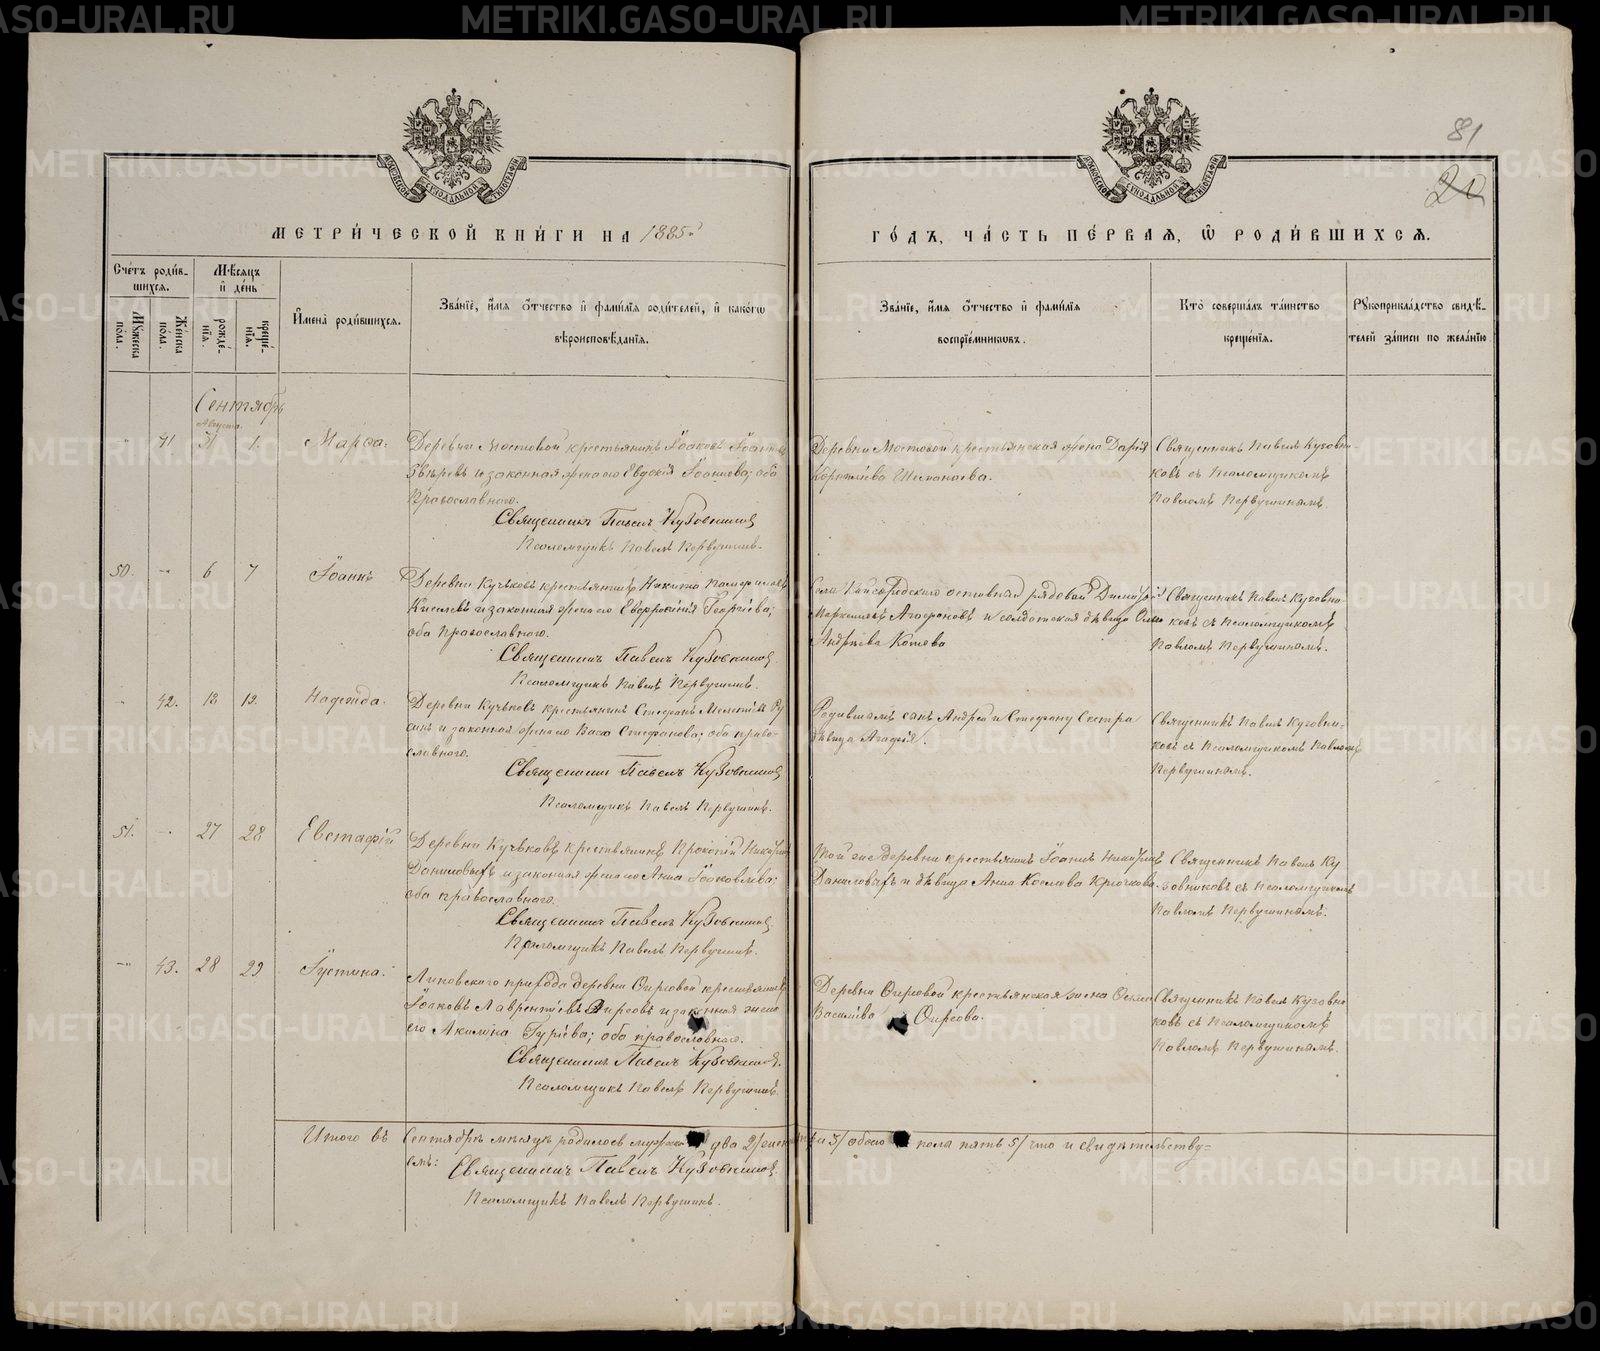 81
20
МЕТРИ́ЧЕСКОЙ КНИ́ГИ НА 1885й
ГО́ДЪ, ЧА́СТЬ ПЕ́РВАЯ, Ѽ РОДИ́ВШИХСЯ.
Сче́тъ роди́в-
шихся.
Мꙋжеска пола.
Же́нска пола.
Мѣсяцъ
и де́нь
рожде́нія.
креще́нія.
И҆мена̀ роди́вшихся.
Зва́нїе, и҆́мя ѻ҆́тчество и҆ фами́лїя роди́телей, и҆ како́гѡ
вѣроисповѣ́данїя.
Зва́нїе, и҆́мя ѻ҆́тчество и҆ фами́лїя
воспрїе́мниковъ.
Кто̀ соверша́лъ та́инство
креще́нїя.
Рꙋкоприкла́дство свидѣ́-
телей за́писи по жела́нїю
Сентябрь
Августа.
41 31 1. Марѳа.
Деревни Мостовой крестьянинъ Іоаковъ Іоанновъ
Звѣревъ и законная жена его Евдокія Іоаннова; оба
Православнаго.
Священникъ Павелъ Кузовниковъ
Псаломщикъ Павелъ Первушинъ.
Деревни Мостовой крестьянская жена Дарія
Корнилiева
Священникъ Павелъ Кузовни-
ковъ съ Псаломщикомъ
Павломъ Первушинымъ.
50. 6 7 Іоаннъ
Деревни Кучковъ крестьянинъ Никита Памфиловъ
Киселевъ и законная жена его Евфросинія Георгіева;
оба Православнаго.
Священникъ Павелъ Кузовниковъ
Псаломщикъ Павелъ Первушинъ.
рядовой Димитрій
Маркелловъ Агафоновъ и солдатская дѣвица
Андрѣева Котева
Священникъ Павелъ Кузовни-
ковъ съ Псаломщикомъ
Павломъ Первушинымъ.
42. 18 19. Надежда.
Деревни Кучковъ крестьянинъ Стефанъ
и законная жена его Васса Стефанова; оба право-
славнаго.
Священникъ Павелъ Кузовниковъ
Псаломщикъ Павелъ Первушинъ.
Андрей и Стефану Сестра
дѣвица Агафія.
Священникъ Павелъ Кузовни-
ковъ съ Псаломщикомъ Павломъ
Первушинымъ.
51. 27 28 Евстафій
Деревни Кучковъ крестьянинъ Прокопій Никитинъ
Даниловыхъ и законная жена его Анна Іоаковлева;
оба православнаго.
Священникъ Павелъ Кузовниковъ
Псаломщикъ Павелъ Первушинъ.
Той же деревни крестьянинъ Іоаннъ Никитинъ
Даниловыхъ и дѣвица Анна Козмова Крючкова.
Священникъ Павелъ Ку
зовниковъ съ Псаломщикомъ
Павломъ Первушинымъ.
43. 28 29 Іустина.
Липовскаго прихода деревни Ощеповой крестьянинъ
Іоаковъ Лаврентіевъ и законная жена
его Акилина Гуріева; оба православнаго.
Священникъ Павелъ Кузовниковъ.
Псаломщикъ Павелъ Первушинъ.
Деревни крестьянская жена
Василіева
Священникъ Павелъ Кузовни
ковъ съ Псаломщикомъ
Павломъ Первушинымъ.
Итого въ Сентябрѣ мѣсяцѣ родилось мужеска два 2/ женска 3/ обоего пола пять 5/ что и свидѣтельству-
емъ: Священникъ Павелъ Кузовниковъ.
Псаломщикъ Павелъ Первушинъ.
METRIKI.GASO-URAL.RU